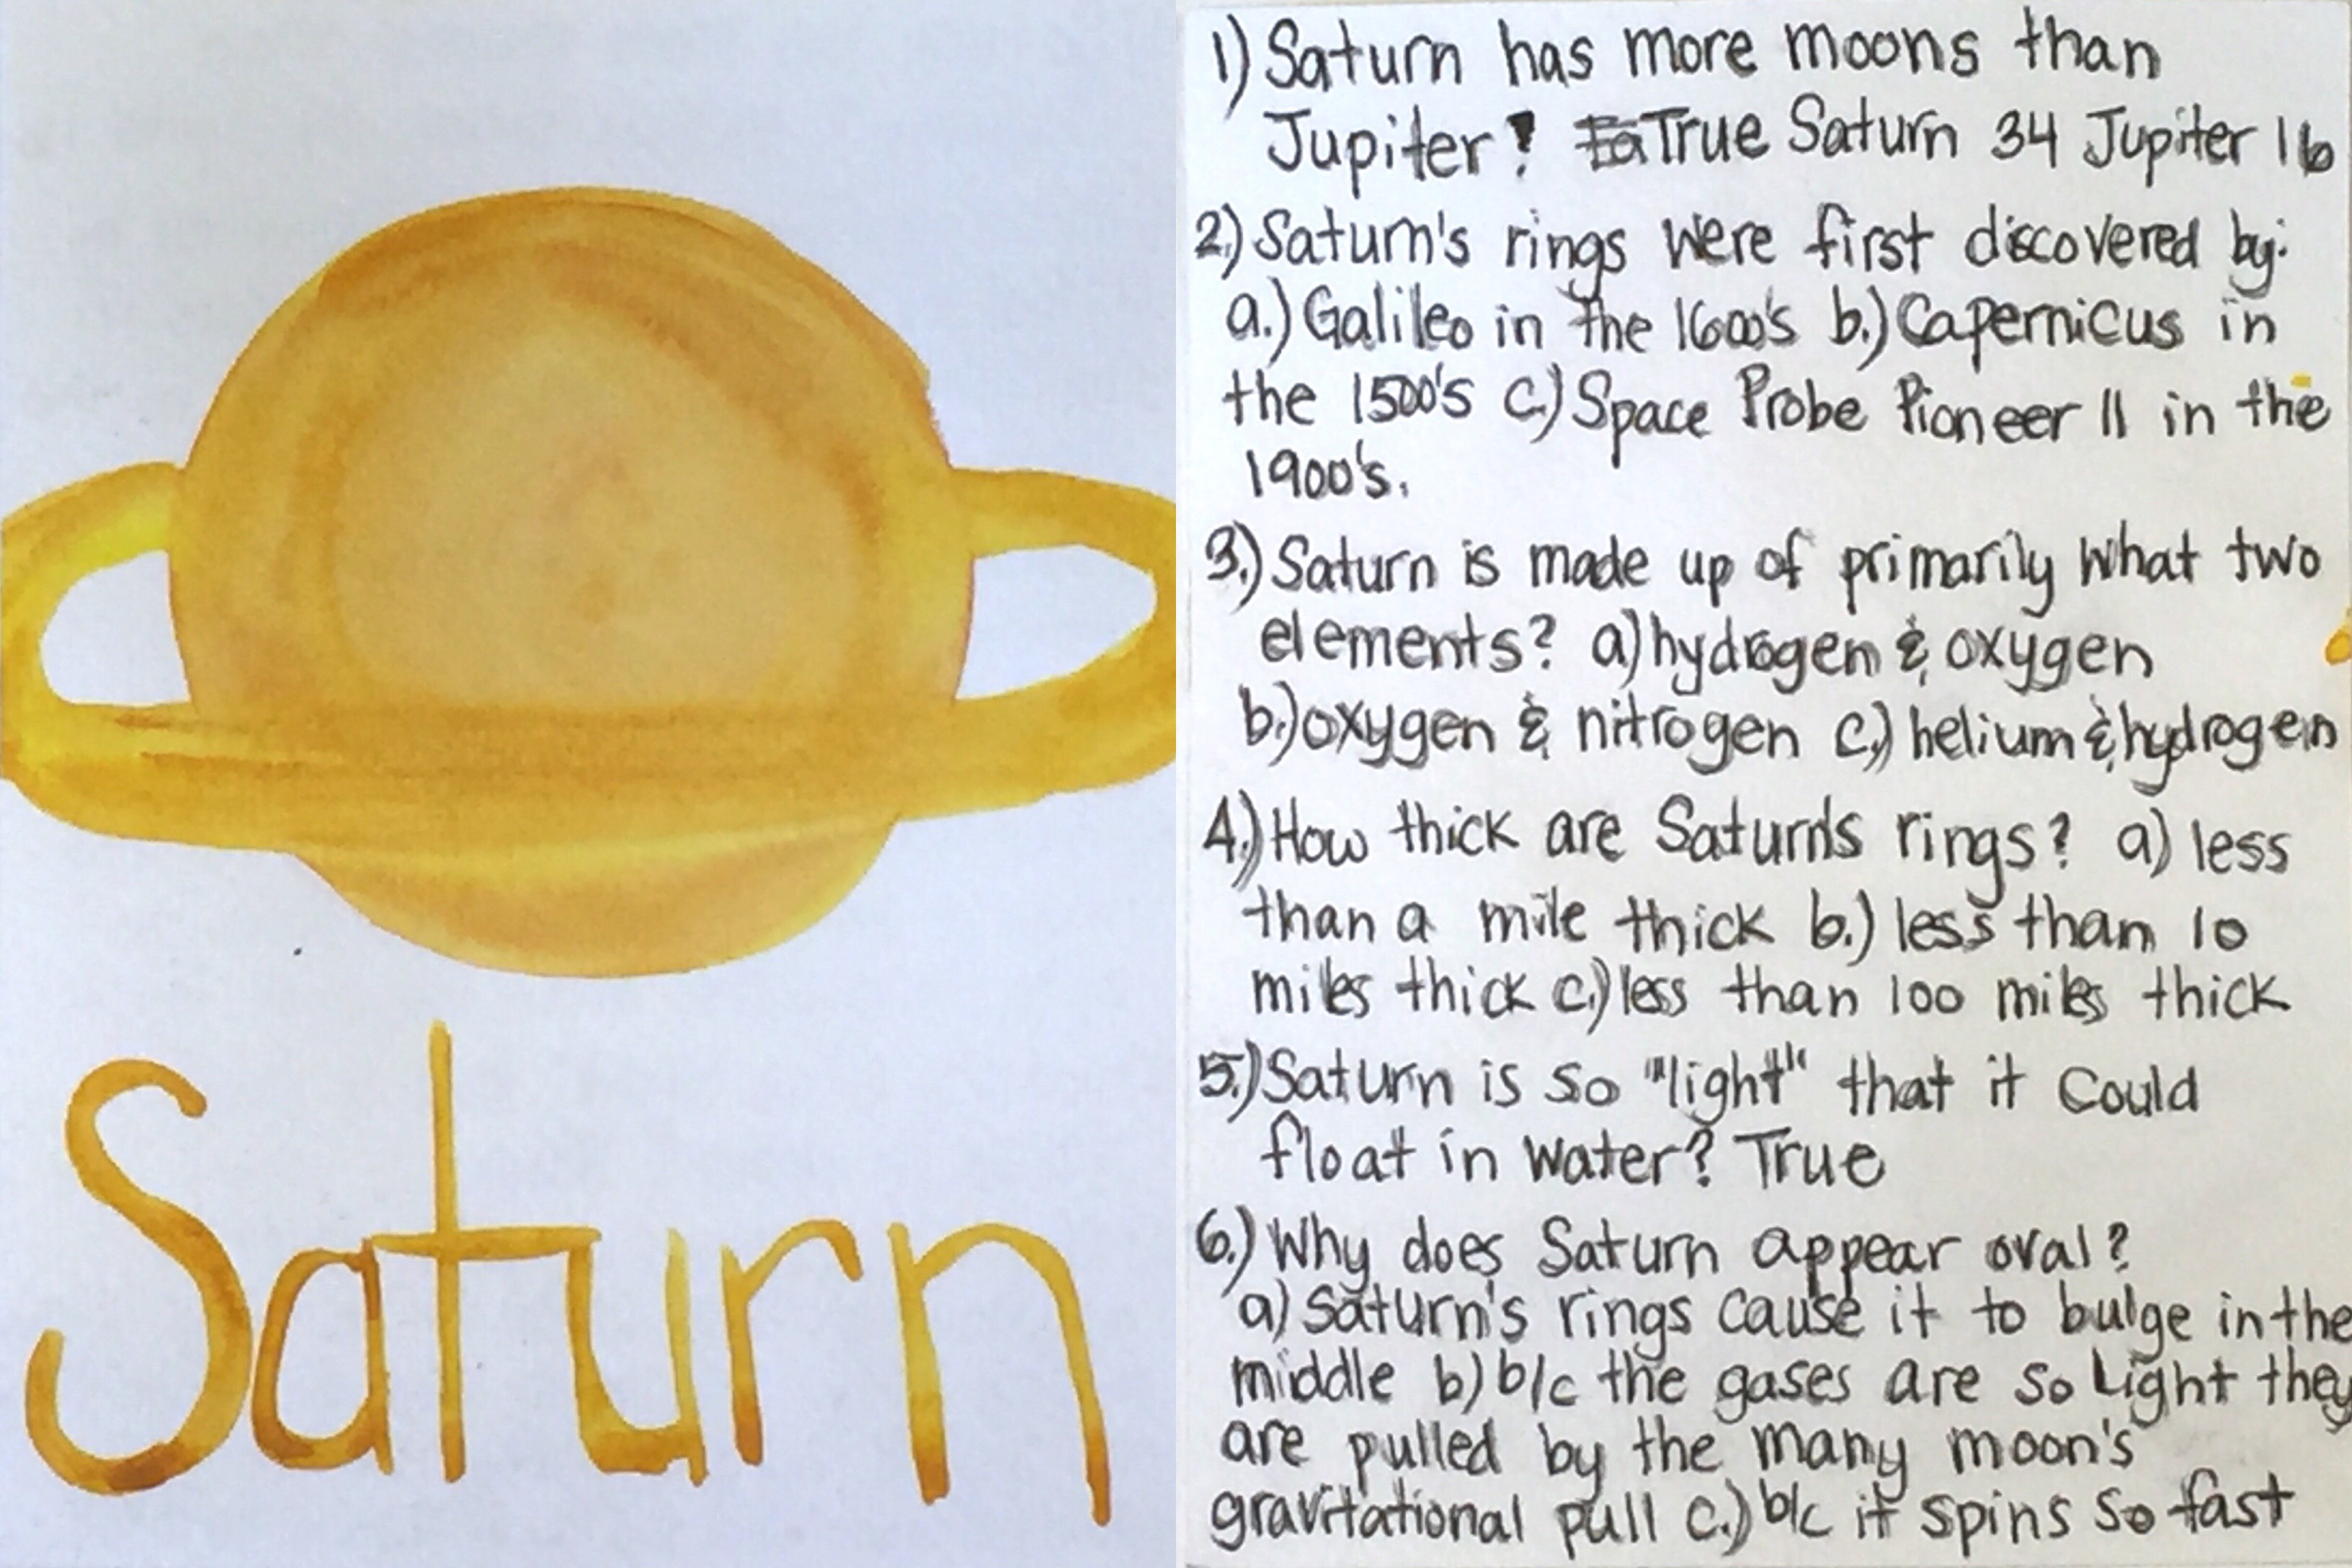 Saturn
1) Saturn has more moons than
Jupiter! True Saturn 34 Jupiter 16
2) Saturn's rings were first discovered by:
a.) Galileo in the 1600's b.) Capernicus in
the 1500's c.) Space Probe Pioneer 11 in the
1900's.
3.) Saturn is made up of primarily what two
elements? a) hydrogen & oxygen
b.) oxygen & nitrogen c.) helium & hydrogen
4.) How thick are Saturn's rings? a) less
than a mile thick b.) less than 10
miles thick c.) less than 100 miles thick
5.) Saturn is so "light" that it could
float in water? True
6.) Why does Saturn appear oval?
a) Saturn's rings cause it to bulge in the
middle b) b/c the gases are so light they
are pulled by the many moon's
gravitational pull c.) b/c it spins so fast